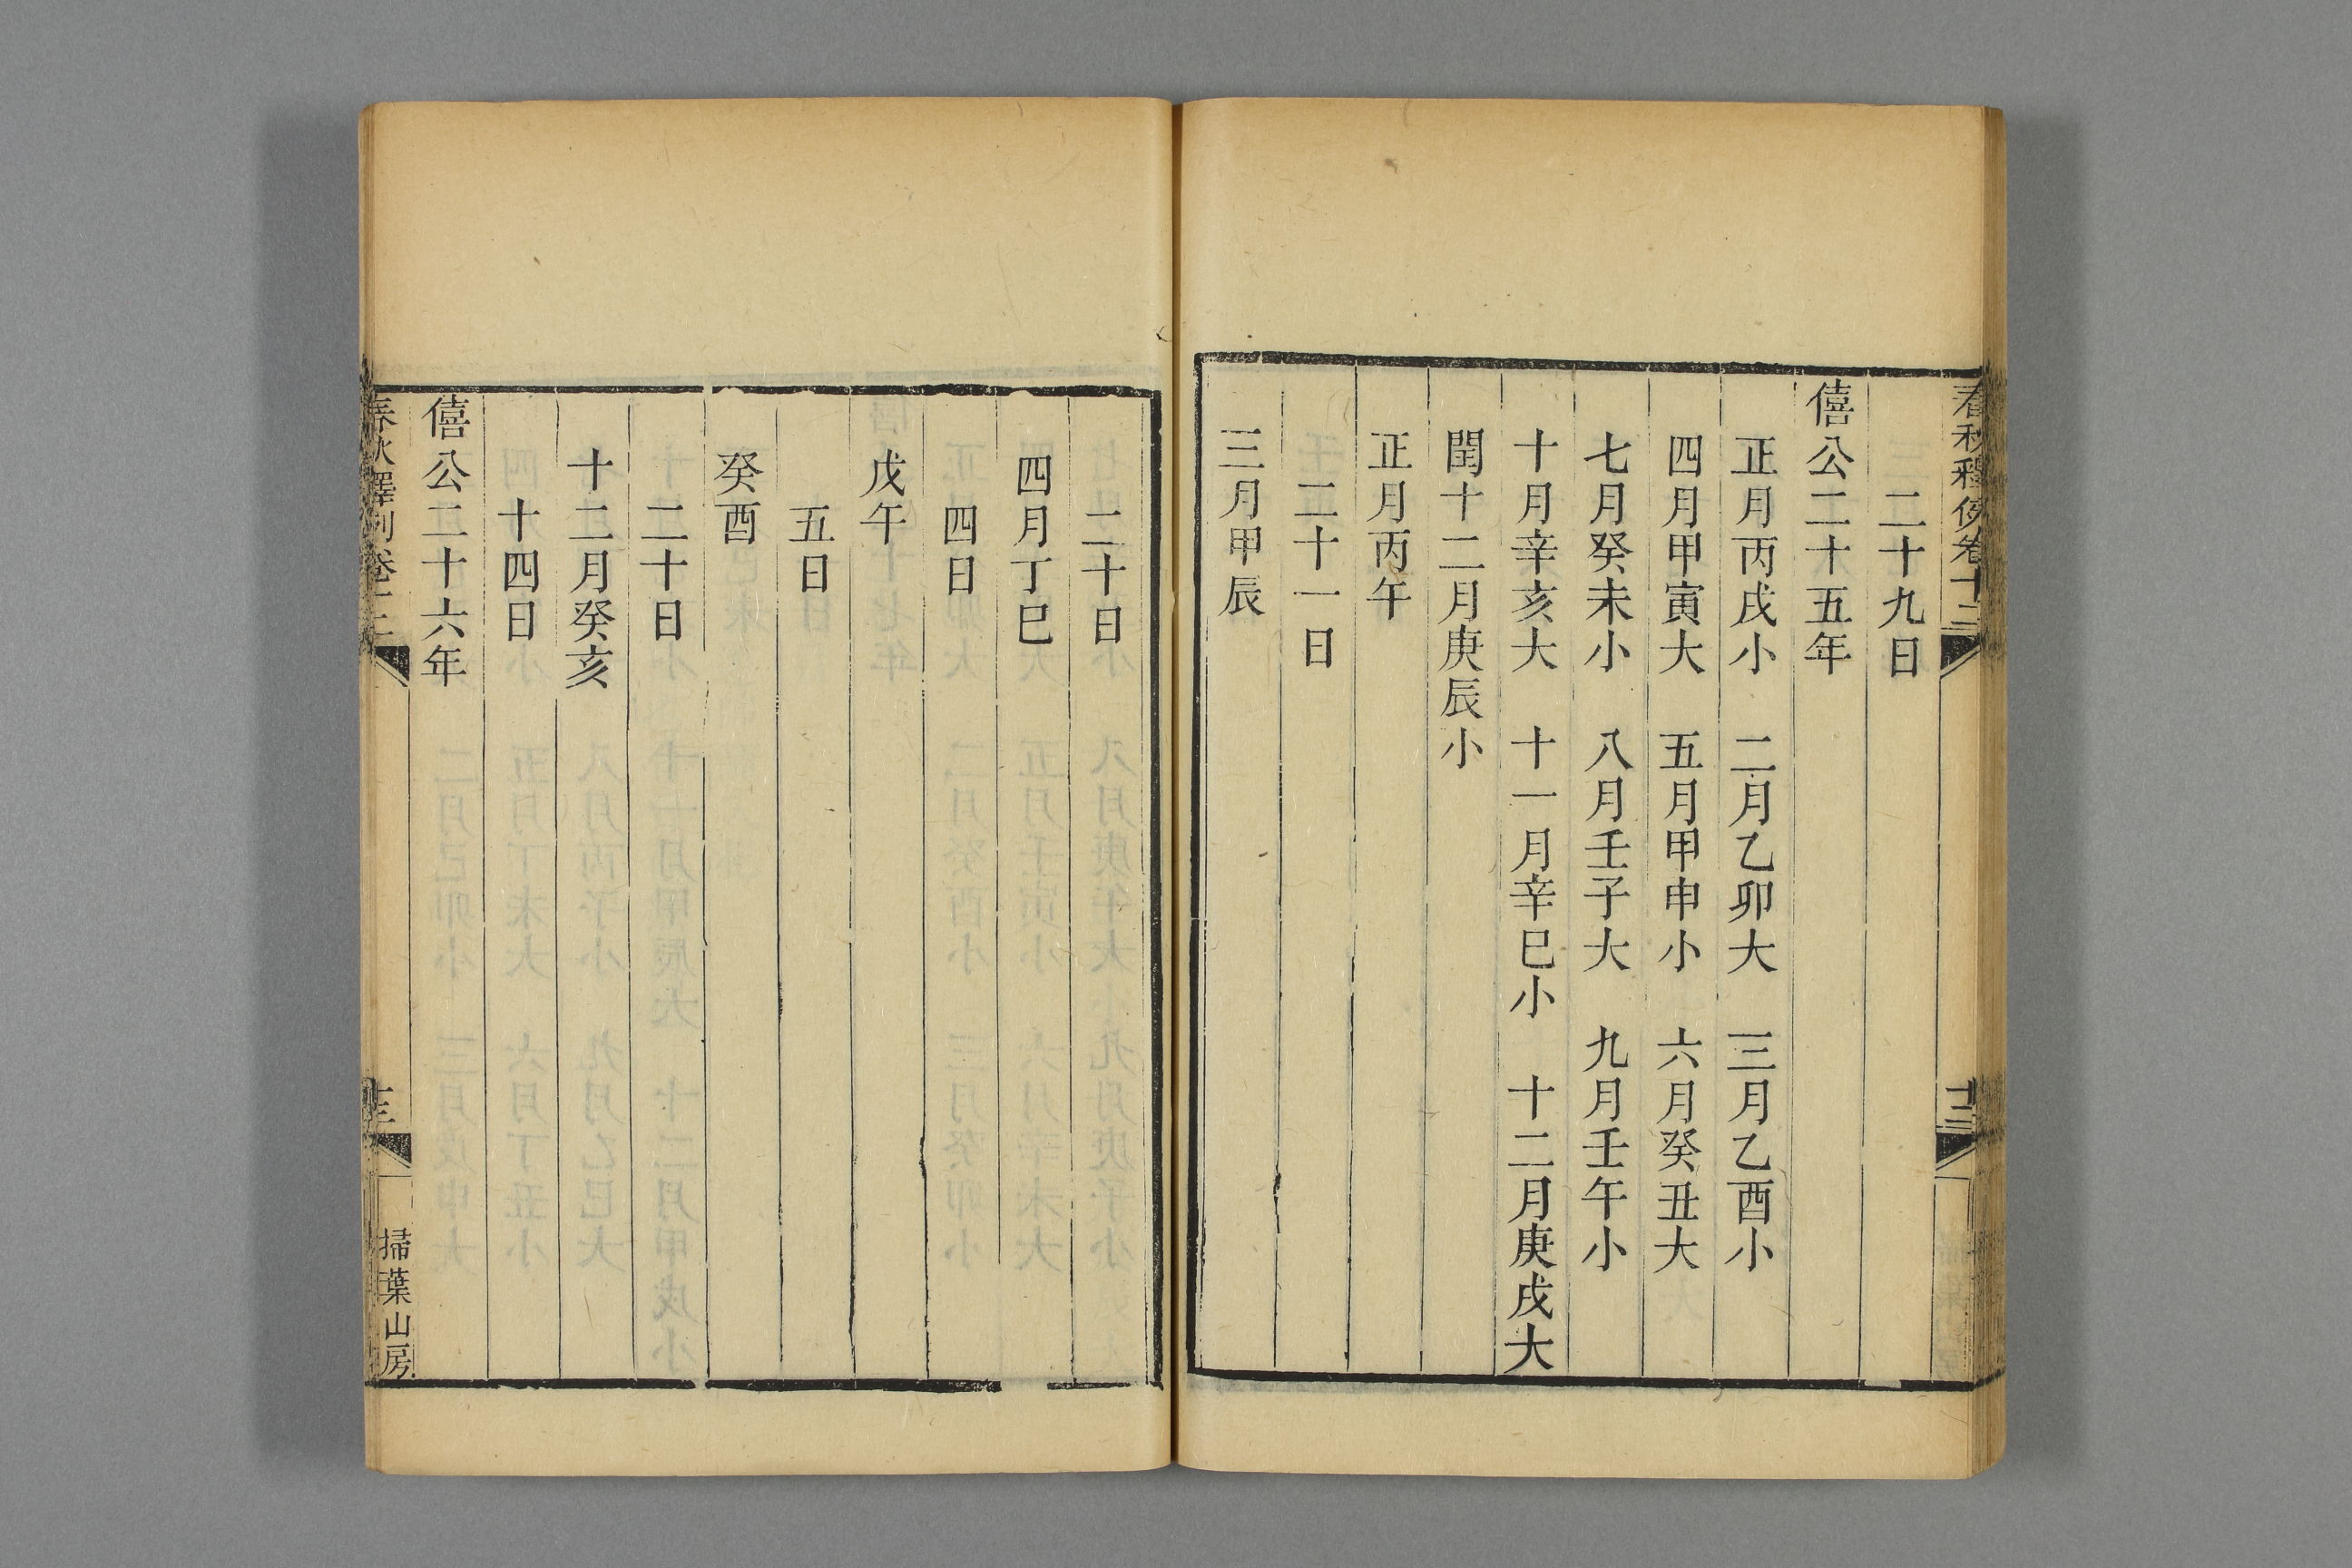 春秋釋例卷十二
十三
二十九日
僖公二十五年
正月丙戌小 二月乙卯大 三月乙酉小
四月甲寅大 五月甲申小 六月癸丑大
七月癸未小 八月壬子大 九月壬午小
十月辛亥大 十一月辛巳小 十二月庚戌大
閏十二月庚辰小
正月丙午
二十一日
三月甲辰
二十日
四月丁巳
四日
戊午
五日
癸酉
二十日
十二月癸亥
十四日
僖公二十六年
春秋釋例卷十二
十三
掃葉山房